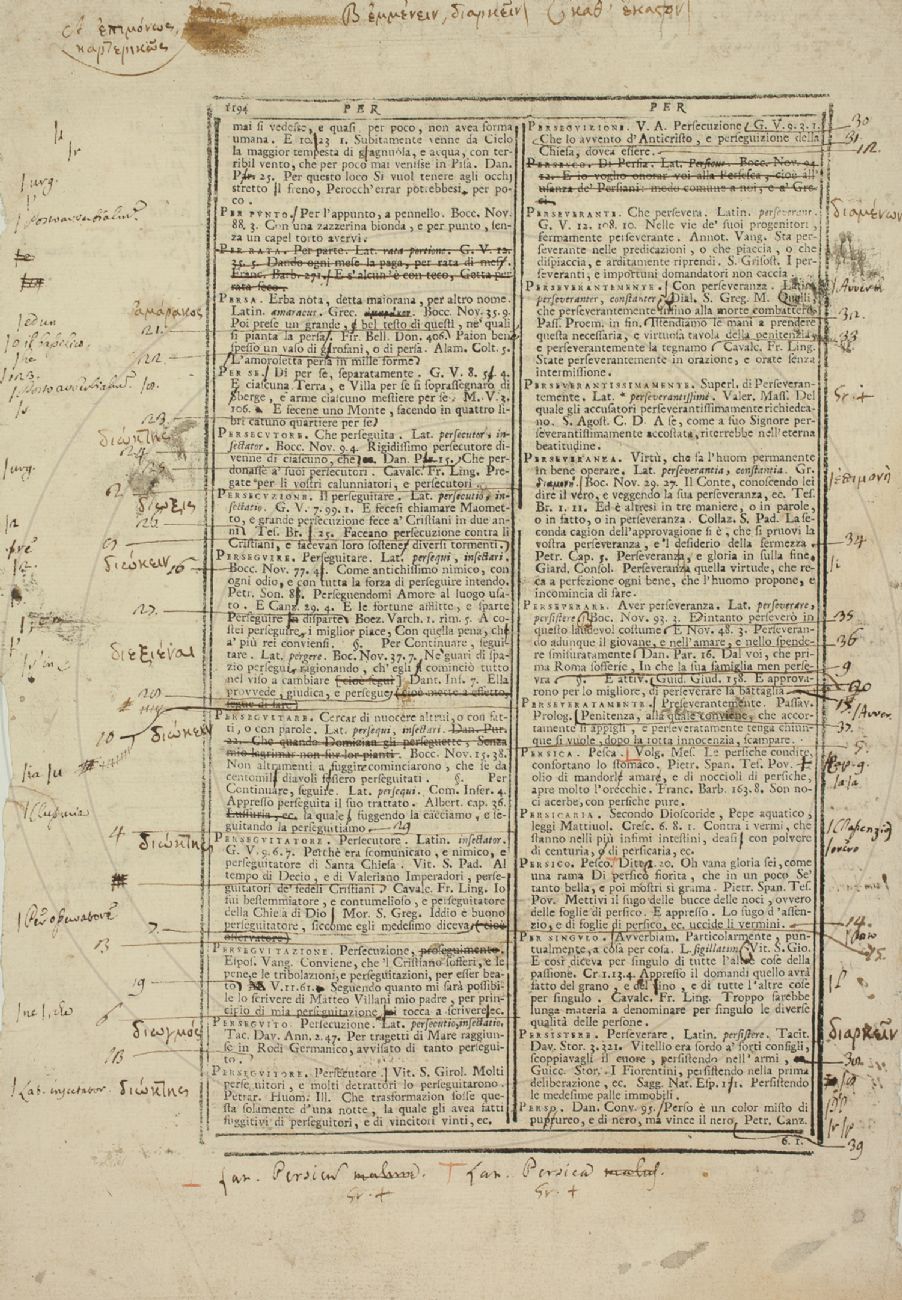 Β ἐμμένειν, διαρκεῖν
καθ' ἑκαστον
ἐπιμόνως,
καρτερικῶς
1194 PER PER
mai si vedesse, e quasi per poco, non avea forma
umana. E 10. 23 1. Subitamente venne da Cielo
la maggior tempesta di gragnuola, e acqua, con ter-
ribil vento, che per poco mai venisse in Pisa. Dan.
Pur. 25. Per questo loco Si vuol tenere agli occhi
stretto il freno, Perocch'errar potrebbesi per po-
co.
PER PUNTO. Per l'appunto, a pennello. Bocc. Nov.
88. 3. Con una zazzerina bionda, e per punto, sen-
za un capel torto avervi.
PER RATA. Per parte. Lat. rata portione. G. V. 12.
35. 5. Dando ogni mese la paga, per rata di mesi.
Franc. Barb. 271. E s'alcun'è con teco, Getta per
rata seco.
PERSA. Erba nota, detta maiorana, per altro nome.
Latin. amaracus. Grec. Bocc. Nov. 35. 9.
Poi prese un grande, e bel testo di questi, ne' quali
si pianta la persa. Fir. Bell. Don. 406. Paion bene
spesso un vaso di garofani, o di persa. Alam. Colt. 5.
L'amoroletta persa in mille forme
PER SE. Di per se, separatamente. G. V. 8. 5. 4.
E ciascuna Terra, e Villa per se si soprassegnaro di
sberge, e arme ciascuno mestiere per se. M. V. 3.
106. E fecene uno Monte, facendo in quattro li-
bri catuno quartiere per se
PERSECUTORE. Che perseguita. Lat. persecutor, in-
sectator. Bocc. Nov. 9. 4. Rigidissimo persecutore di-
venne di ciascuno, che Dan. Pur. 15. Che per-
donasse a' suoi persecutori. Cavalc. Fr. Ling. Pre-
gate per li vostri calunniatori, e persecutori
PERSECUZIONE. Il perseguitare. Lat. persecutio, in-
sectatio. G. V. 7. 99. 1. E fecesi chiamare Maomet-
to, e grande persecuzione fece a' Cristiani in due an-
ni Tes. Br. 25. Faceano persecuzione contra li
Cristiani, e facevan loro sostenere diversi tormenti.
PERSEGUIRE. Perseguitare. Lat. persequi, insectari.
Bocc. Nov. 77. 4. Come antichissimo nimico, con
ogni odio, e con tutta la forza di perseguire intendo.
Petr. Son. 88. Perseguendomi Amore al luogo usa-
to. E Canz. 29. 4. E le fortune afflitte, e sparte
Perseguire in disparte Boez. Varch. 1. rim. 5. A co-
sti perseguire i miglior piace, Con quella pena, che
a' più rei conviensi. §. Per Continuare, segui-
tare. Lat. pergere. Bocc. Nov. 37. 7. Ne guari di spa-
zio perseguì ragionando, ch' egli cominciò tutto
nel viso a cambiare (cioè seguì) Dant. Inf. 7. Ella
provvede, giudica, e persegue (cioè mette a effetto,
segue di fare)
PERSEGUITARE. Cercar di nuocere altrui, o con fat-
ti, o con parole. Lat. persequi, insectari. Dan. Pur.
22. Che quando Domizian gli perseguette, Senza
mio lagrimar non fur lor pianti. Bocc. Nov. 15. 38.
Non altrimenti a fuggire cominciarono, che se da
centomila diavoli fosiero perseguitati. §. Per
Continuare, seguire. Lat. persequi. Com. Infer. 4.
Appresso perseguita il suo trattato. Albert. cap. 36.
Lussuria, ec. la quale fuggendo la cacciamo, e se-
guitando la perseguitiamo
PERSEGUITATORE. Persecutore. Latin. insectator.
G. V. 9. 6. 7. Perchè era scomunicato, e nimico, e
perseguitatore di Santa Chiesa. Vit. S. Pad. Al
tempo di Decio, e di Valeriano Imperadori, perse-
guitatori de' fedeli Cristiani. Cavalc. Fr. Ling. Io
fui bestemmiatore, e contumelioso, e perseguitatore
della Chiesa di Dio Mor. S. Greg. Iddio è buono
perseguitatore, siccome egli medesimo diceva (cioè
osservatore)
PERSEGUITAZIONE. Persecuzione, proseguimento.
Espos. Vang. Conviene, che 'l Cristiano sofferi, e le
pene, e le tribolazioni, e perseguitazioni, per esser bea-
to M. V. 11. 61. Seguendo quanto mi sarà possibi-
le lo scrivere di Matteo Villani mio padre, per prin-
cipio di mia perseguitazione mi tocca a scrivere, ec.
PERSEGUITO. Persecuzione. Lat. persecutio, insectatio.
Tac. Dav. Ann. 2. 47. Per tragetti di Mare raggiun-
se in Rodi Germanico, avvisato di tanto persegui-
to.
PERSEGUITORE. Persecutore. Vit. S. Girol. Molti
perseguitori, e molti detrattori lo perseguitarono.
Petrar. Huom. Ill. Che trasformazion fosse que-
sta solamente d'una notte, la quale gli avea fatti
fuggitivi di perseguitori, e di vincitori vinti, ec.
PERSEGUIZIONE. V. A. Persecuzione. G. V. 9. 3. 1.
Che lo avvento d'Anticristo, e perseguizione della
Chiesa, dovea essere.
PERSESCO. Di Persia. Lat. Persicus. Bocc. Nov. 94.
12. E io voglio onorar voi alla Persesca, cioè all'
usanza de' Persiani: modo comune a noi, e a' Gre-
ci.
PERSEVERANTE. Che persevera. Latin. perseverans.
G. V. 12. 108. 10. Nelle vie de' suoi progenitori,
fermamente perseverante. Annot. Vang. Sta per-
severante nelle predicazioni, o che piaccia, o che
dispiaccia, e arditamente riprendi. S. Grisost. I per-
severanti, e importuni domandatori non caccia.
PERSEVERANTEMENTE. Con perseveranza. Latin.
perseveranter, constanter. Dial. S. Greg. M. Quelli,
che perseverantemente infino alla morte combatterò.
Pass. Proem. in fin. Attendiamo le mani a prendere
questa necessaria, e virtuosa tavola della penitenzia,
e perseverantemente la tegnamo. Cavalc. Fr. Ling.
State perseverantemente in orazione, e orate senza
intermissione.
PERSEVERANTISSIMAMENTE. Superl. di Perseveran-
temente. Lat. * perseverantissimè. Valer. Mass. Del
quale gli accusatori perseverantissimamente richiedea-
no. S. Agost. C. D. A se, come a suo Signore per-
severantissimamente accostata, riterrebbe nell'eterna
beatitudine.
PERSEVERANZA. Virtù, che fa l'huom permanente
in bene operare. Lat. perseverantia, constantia. Gr.
διαμονή. Bocc. Nov. 29. 27. Il Conte, conoscendo lei
dire il vero, e veggendo la sua perseveranza, ec. Tes.
Br. 1. 11. Ed è altresì in tre maniere, o in parole,
o in fatto, o in perseveranza. Collaz. S. Pad. La se-
conda cagion dell'approvagione si è, che si pruovi la
vostra perseveranza, e 'l desiderio della fermezza
Petr. Cap. 5. Perseveranza, e gloria in sulla fine.
Giard. Consol. Perseveranza è quella virtude, che re-
ca a perfezione ogni bene, che l'huomo propone, e
incomincia di fare.
PERSEVERARE. Aver perseveranza. Lat. perseverare,
persistere. Bocc. Nov. 93. 3. E intanto perseverò in
questo laudevol costume. E Nov. 48. 3. Perseveran-
do adunque il giovane, e nell'amare, e nello spende-
re ismisuratamente Dan. Par. 16. Dal voi, che pri-
ma Roma sofferse, In che la sua famiglia men perse-
vra §. E attiv. Guid. Giud. 158. E approva-
rono per lo migliore, di perseverare la battaglia
PERSEVERATAMENTE. Perseverantemente. Passav.
Prolog. Penitenza, alla quale conviene, che accor-
tamente si appigli, e perseveratamente tenga chiun-
que si vuole, dopo la rotta innocenzia, scampare.
PERSICA. Pesca. Volg. Mes. Le persiche condite,
confortano lo stomaco. Pietr. Span. Tes. Pov.
olio di mandorle amare, e di noccioli di persiche,
apre molto l'orecchie. Franc. Barb. 163. 8. Son no-
ci acerbe, con persiche pure.
PERSICARIA. Secondo Dioscoride, Pepe aquatico,
leggi Mattiuol. Cresc. 6. 8. 1. Contra i vermi, che
stanno nelli più infimi intestini, deasi con polvere
di centuria, o di persicaria, ec.
PERSICO. Pesco. Dittr. 20. Oh vana gloria sei, come
una rama Di persico fiorita, che in un poco Se'
tanto bella, e poi mostri sì grama. Pietr. Span. Tes.
Pov. Mettivi il sugo delle bucce delle noci, ovvero
delle foglie di persico. E appresso. Lo sugo d'assen-
zio, e di foglie di persico, ec. uccide li vermini.
PER SINGULO. Avverbiam. Particolarmente, pun-
tualmente, a cosa per cosa. L. sigillatim. Vit. S. Gio.
E così diceva per singulo di tutte l'altre cose della
passione. Cr. 1. 13. 4. Appresso il domandi quello avrà
fatto del grano, e del vino, e di tutte l'altre cose
per singulo. Cavalc. Fr. Ling. Troppo sarebbe
lunga materia a denominare per singulo le diverse
qualità delle persone.
PERSISTERE. Perseverare. Latin. persistere. Tacit.
Dav. Stor. 3. 321. Vitellio era sordo a' forti consigli,
scoppiavagli il cuore, persistendo nell'armi,
Guicc. Stor. I Fiorentini, persistendo nella prima
deliberazione, ec. Sagg. Nat. Esp. 151. Persistendo
le medesime palle immobili.
PERSO. Dan. Conv. 95. Perso è un color misto di
purpureo, e di nero, ma vince il nero. Petr. Canz.
6. 1.
ἀμάρακος
21.
22
23
διώκτης
24
25
δίωξις
26
διώκειν
16
27.
διεξιέναι
20
10
διώκειν
4
διώκτης
7.
13
19
6
διωγμός
23
διώκτης
30
31.
112.
διαμένων
32.
33
Gr. +
ἐπιμονή
34
35
36
9
37.
14.
διαρκεῖν
39
Lat. Persicum malum. Lat. Persica mala.
Gr. + Gr. +